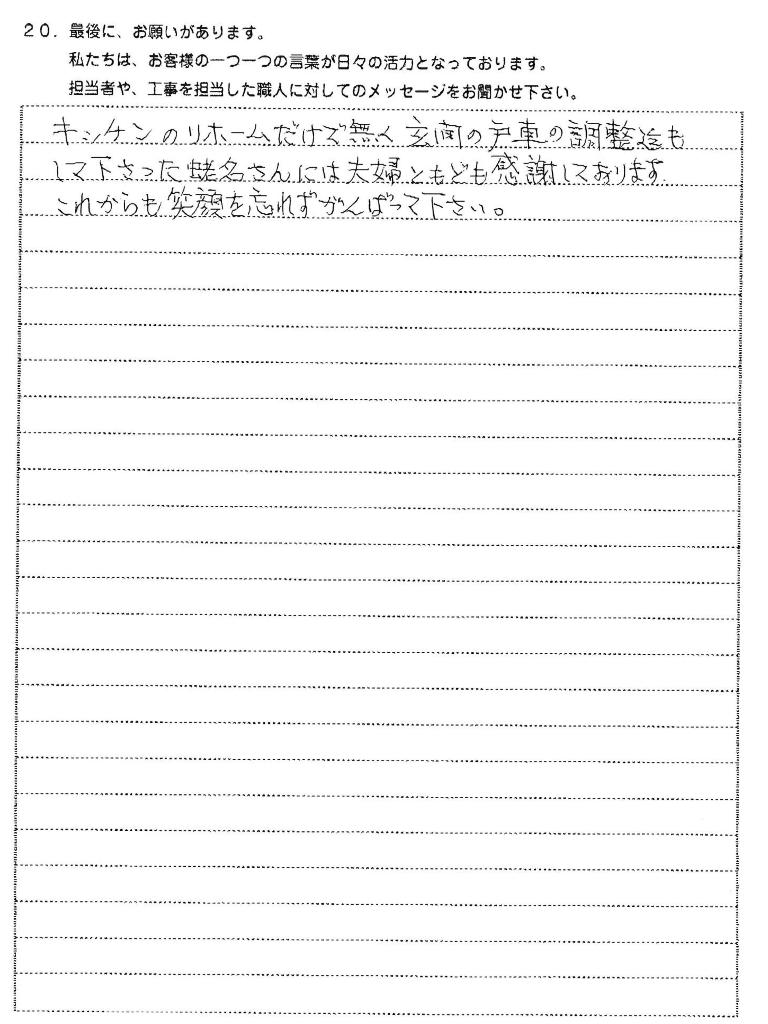 20. 最後に、お願いがあります。
私たちは、お客様の一つ一つの言葉が日々の活力となっております。
担当者や、工事を担当した職人に対してのメッセージをお聞かせ下さい。
キッチンのリホームだけで無く玄関の戸車の調整迄も
して下さった蛯名さんには夫婦ともども感謝しております
これからも笑顔を忘れずがんばって下さい。